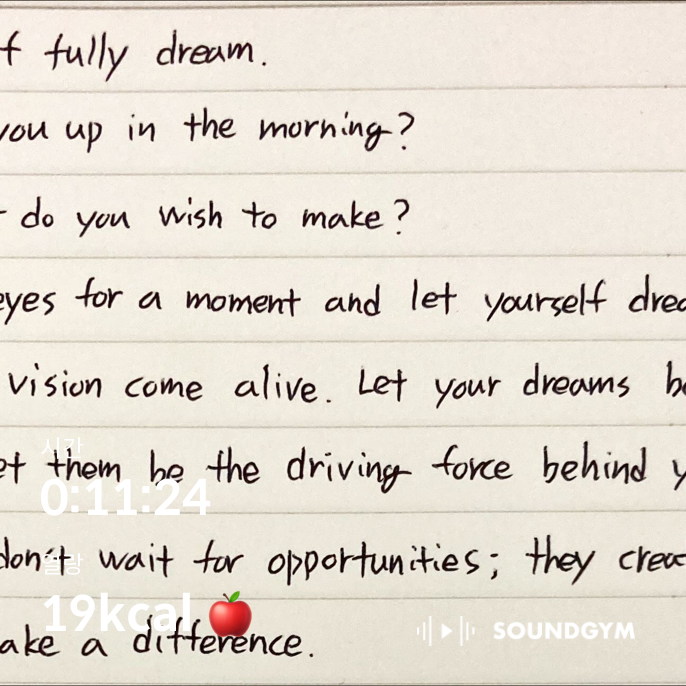 f fully dream.
you up in the morning?
do you wish to make?
eyes for a moment and let yourself
vision come alive. Let your dreams
them be the driving force behind
시간
0:11:24
don't wait for opportunities; they
열량
19kcal
a difference.
SOUNDGYM